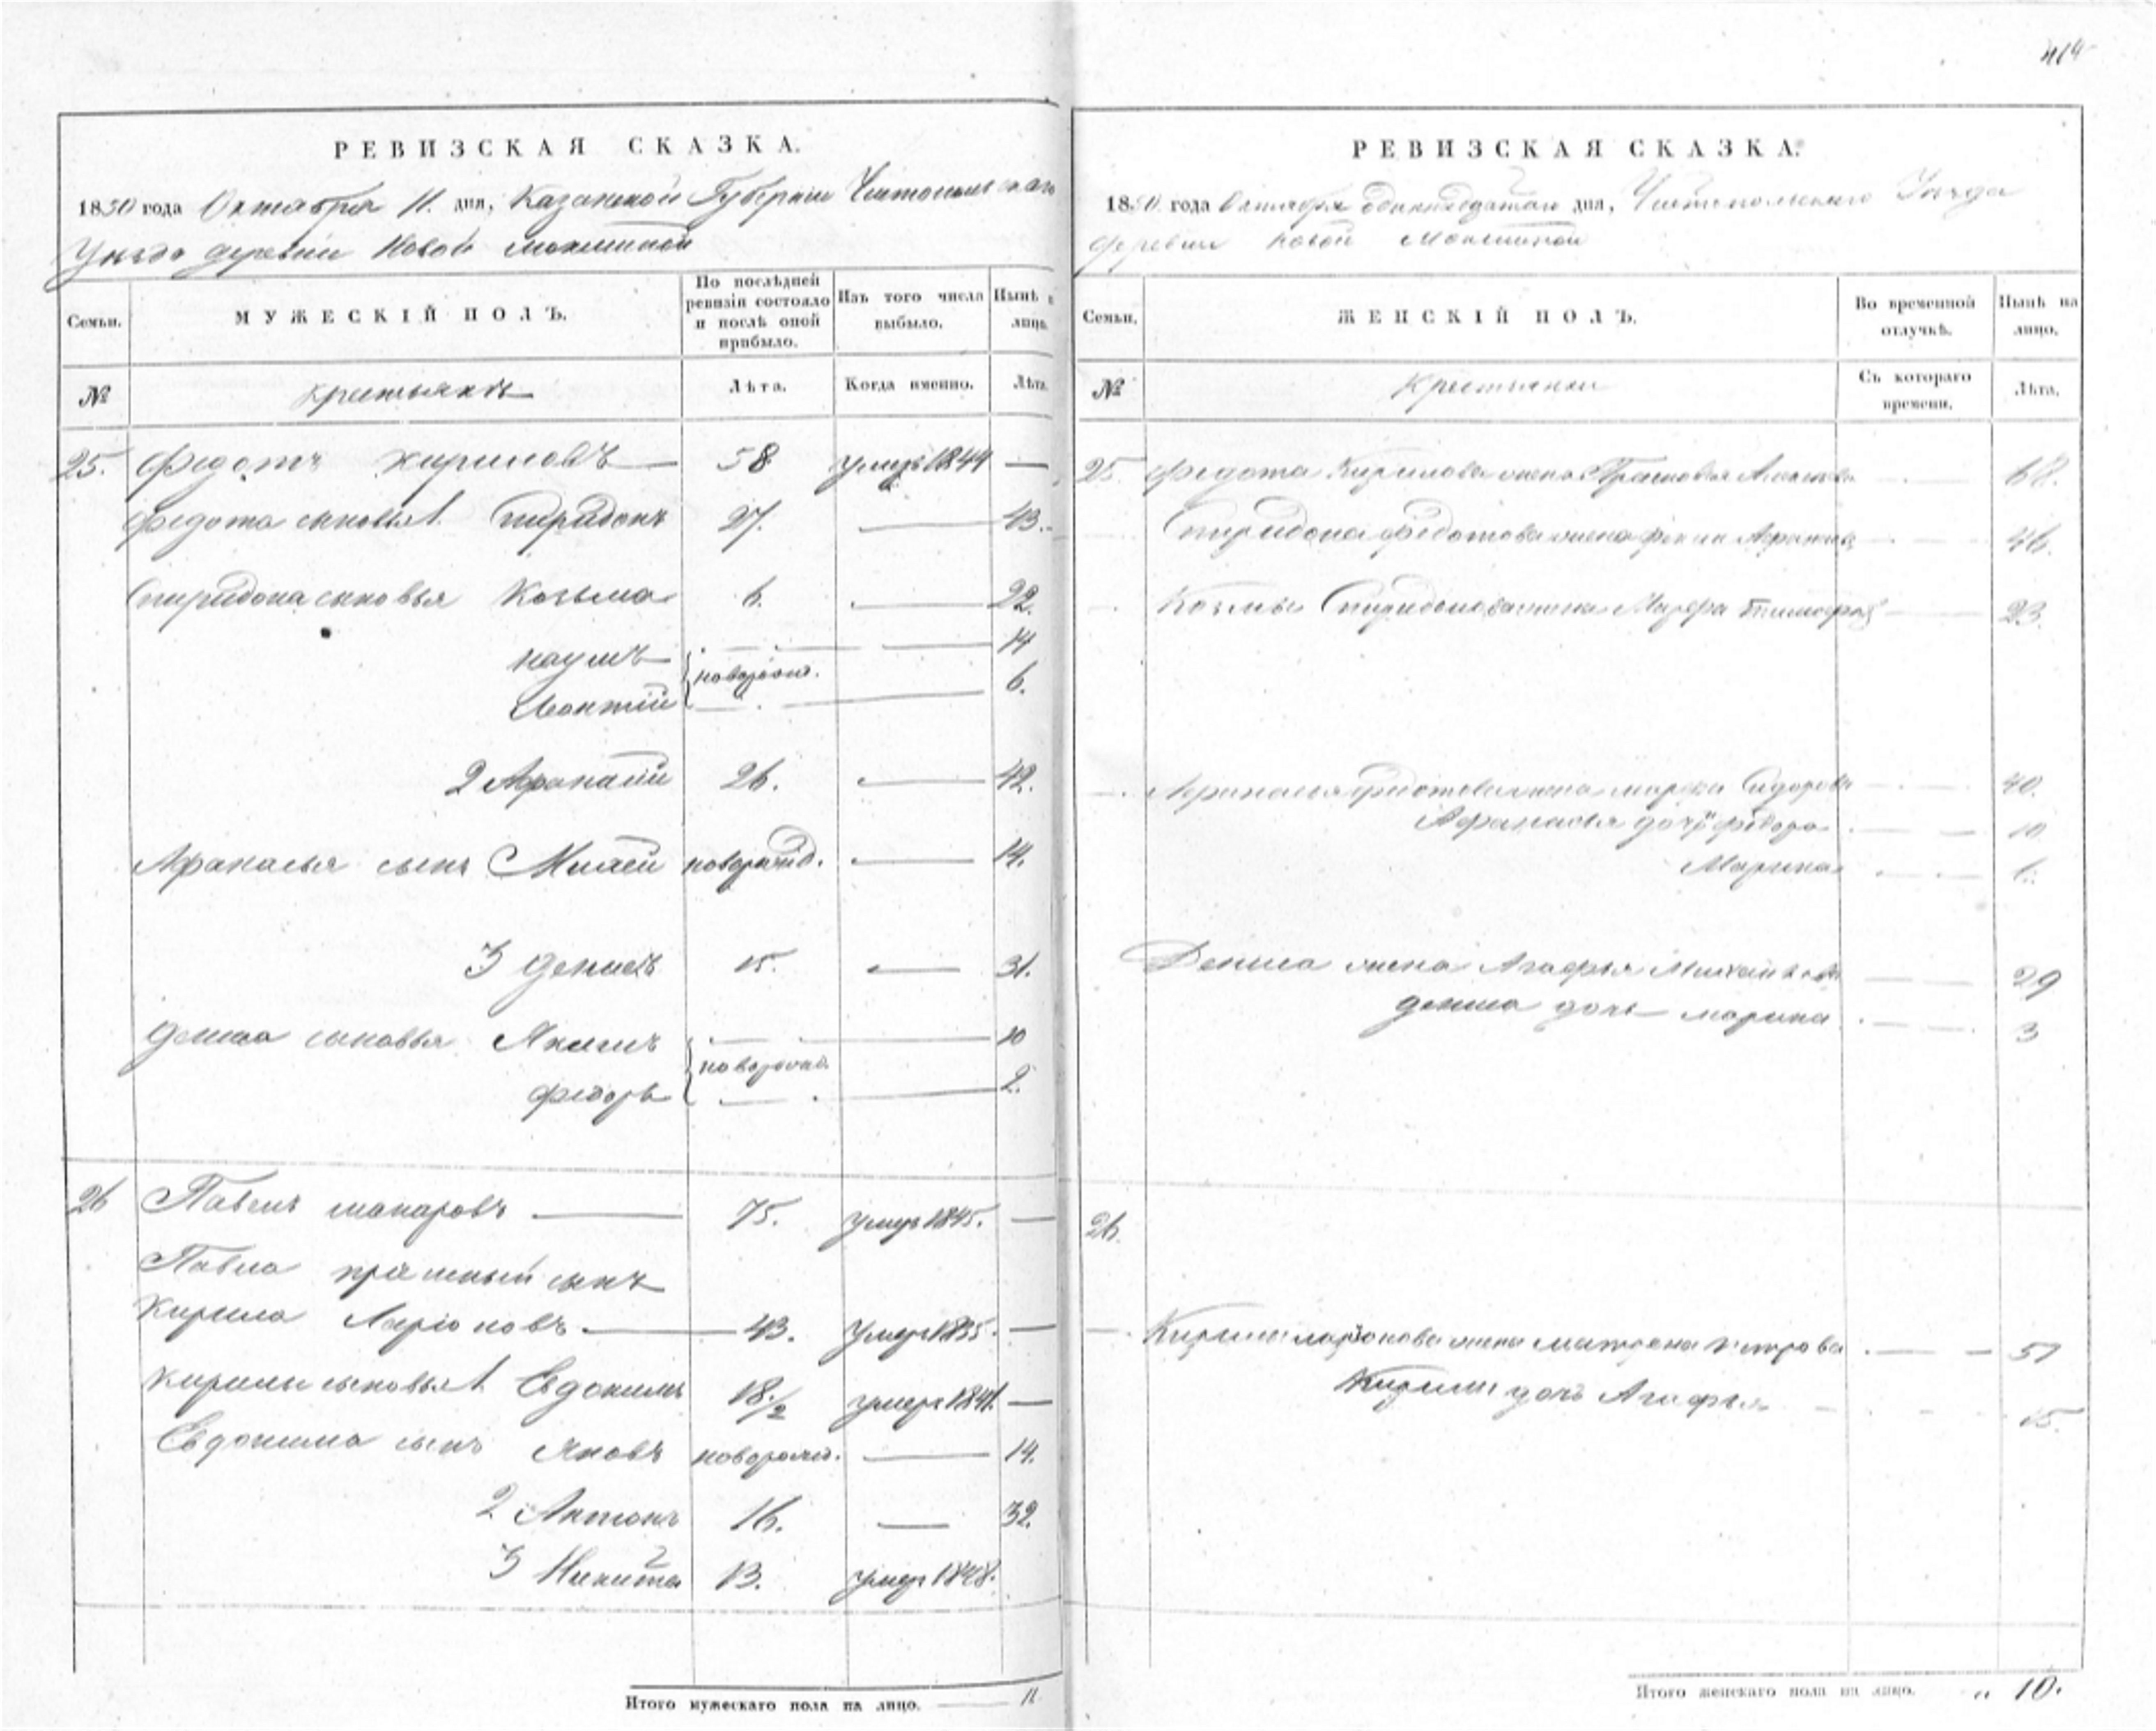 414
РЕВИЗСКАЯ СКАЗКА.
1850 года Октября 11. дня, Казанской Губернии Чистопольскаго
Уезда деревни Новой Мокшиной
Семьи.
МУЖЕСКІЙ ПОЛЪ.
По послѣдней ревизіи состояло и послѣ оной прибыло.
Изъ того числа выбыло.
Нынѣ
лицо.
№
крестьянъ
Лѣта.
Когда именно.
Лѣта
25. Федотъ Кириловъ 58 умеръ 1844
Федота сыновья 1. Спиридонъ 27. 43.
Спиридона сыновья Козьма 6. 22.
Наумъ 14
новорожд.
Леонтій 6.
2 Афанасій 26. 42.
Афанасья сынъ Михей новорожд. 14.
3 Денисъ 15. 31.
Дениса сыновья Якимъ 10
новорожд.
Федоръ 2.
26 Павелъ Макаровъ 75. умеръ 1845.
Павла пріемный сынъ
Кирила Ларіоновъ 43. Умеръ 1835.
Кирилы сыновья 1. Евдокимъ 18 1/2 умеръ 1841.
Евдокима сынъ Яковъ новорожд. 14.
2 Антонъ 16. 32.
3 Никита 13. умеръ 1848.
Итого мужескаго пола на лицо. 11
РЕВИЗСКАЯ СКАЗКА.
1850 года Октября одиннадцатаго дня, Чистопольскаго Уезда
деревни Новой Мокшиной
Семьи.
ЖЕНСКІЙ ПОЛЪ.
Во временной отлучкѣ.
Нынѣ на лицо.
№
Крестьянки
Съ котораго времени.
Лѣта.
25. Федота Кирилова жена Прасковья 68.
Спиридона Федотова жена 46.
Козмы Спиридонова жена 23.
Афанасья Федотова жена Марфа Сидорова 40.
Афанасья дочь Федора 10
Марина 6.
Дениса жена Агафья Михайлова 29
Дениса дочь Марина 3
26.
Кирилы Ларіонова жена Матрена Петрова 51
Кирилы дочь Агафья 15.
Итого женскаго пола на лицо. 10.